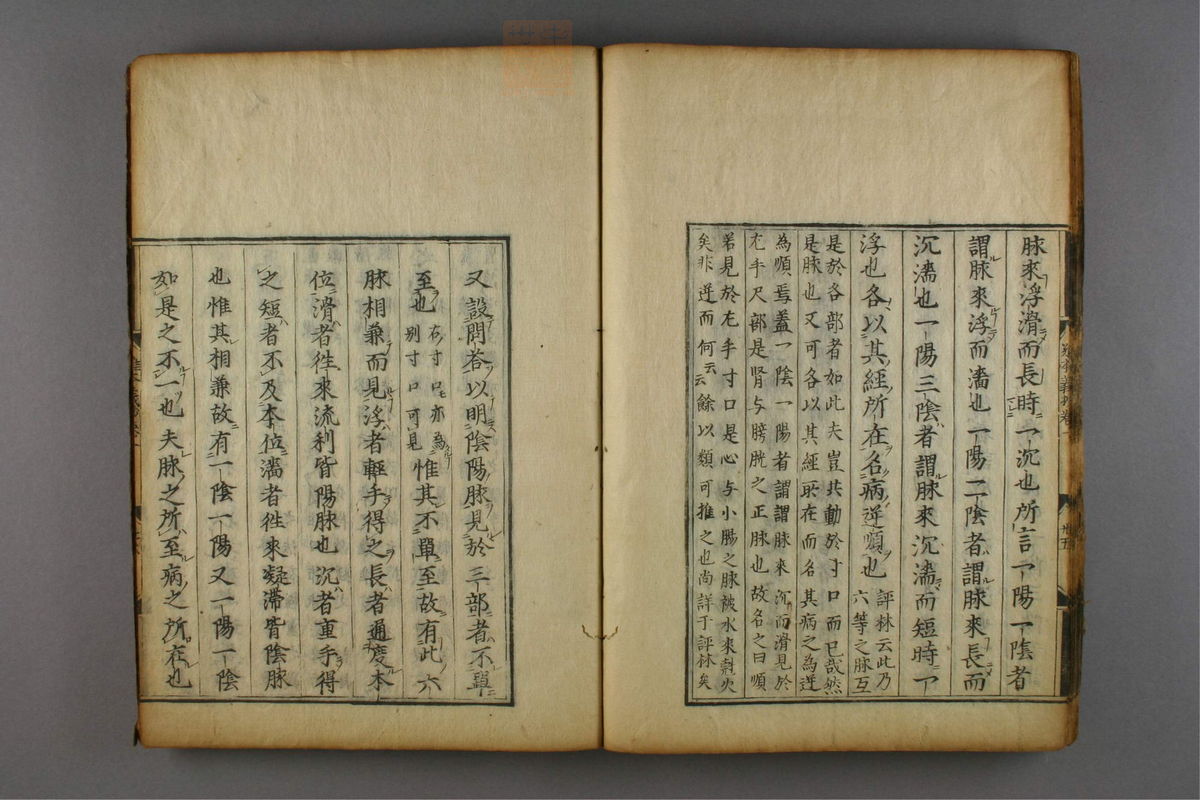 脉來浮滑而長時一沉也所言一陽一陰者
謂脉來浮而濇也一陽二陰者謂脉來長而
沉濇也一陽三陰者謂脉來沉濇而短時一
浮也各以其經所在名病逆順也
評林云此乃
六等之脉互
是於各部者如此夫豈共動於寸口而已哉然
是脉也又可各以其經所在而名其病之為逆
為順焉蓋一陰一陽者謂謂脉來沉而滑見於
左手尺部是肾与膀胱之正脉也故名之曰順
若見於左手寸口是心与小腸之脉被水來尅火
矣非逆而何云云餘以類可推之也尚詳于評林矣
卅五
又設問荅以明陰陽脉見於三部者不單
至也
在寸口亦為
别寸口可見
惟其不單至故有此六
脉相兼而見浮者輕手得之長者通度本
位滑者徃來流利皆陽脉也沉者重手得
之短者不及本位濇者徃來凝滯皆陰脉
也惟其相兼故有一陰一陽又一陽一陰
如是之不一也夫脉之所至病之所在也